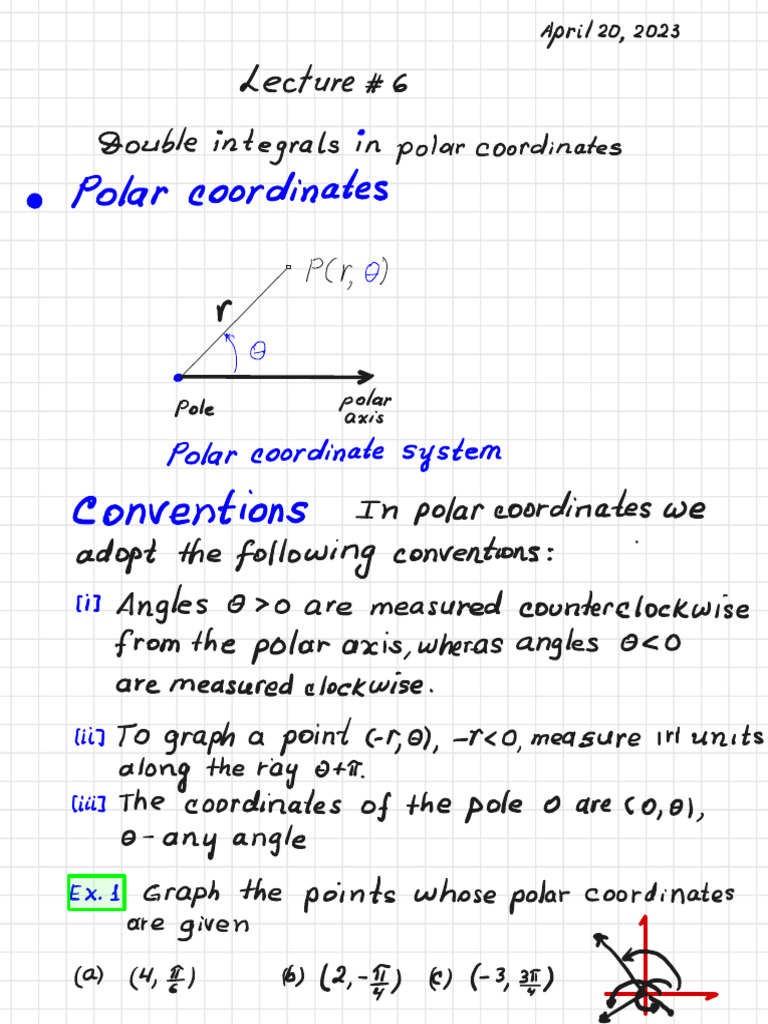 April 20, 2023
Lecture # 6
Double integrals in polar coordinates
• Polar coordinates
P(r, θ)
r
θ
Pole
polar
axis
Polar coordinate system
Conventions In polar coordinates we
adopt the following conventions:
[i] Angles θ>0 are measured counterclockwise
from the polar axis, wheras angles θ<0
are measured clockwise.
[ii] To graph a point (-r,θ), -r<0, measure |r| units
along the ray θ+π.
[iii] The coordinates of the pole O are (0,θ),
θ-any angle
Ex. 1 Graph the points whose polar coordinates
are given
(a) (4, π/6) (b) (2, -π/4) (c) (-3, 3π/4)